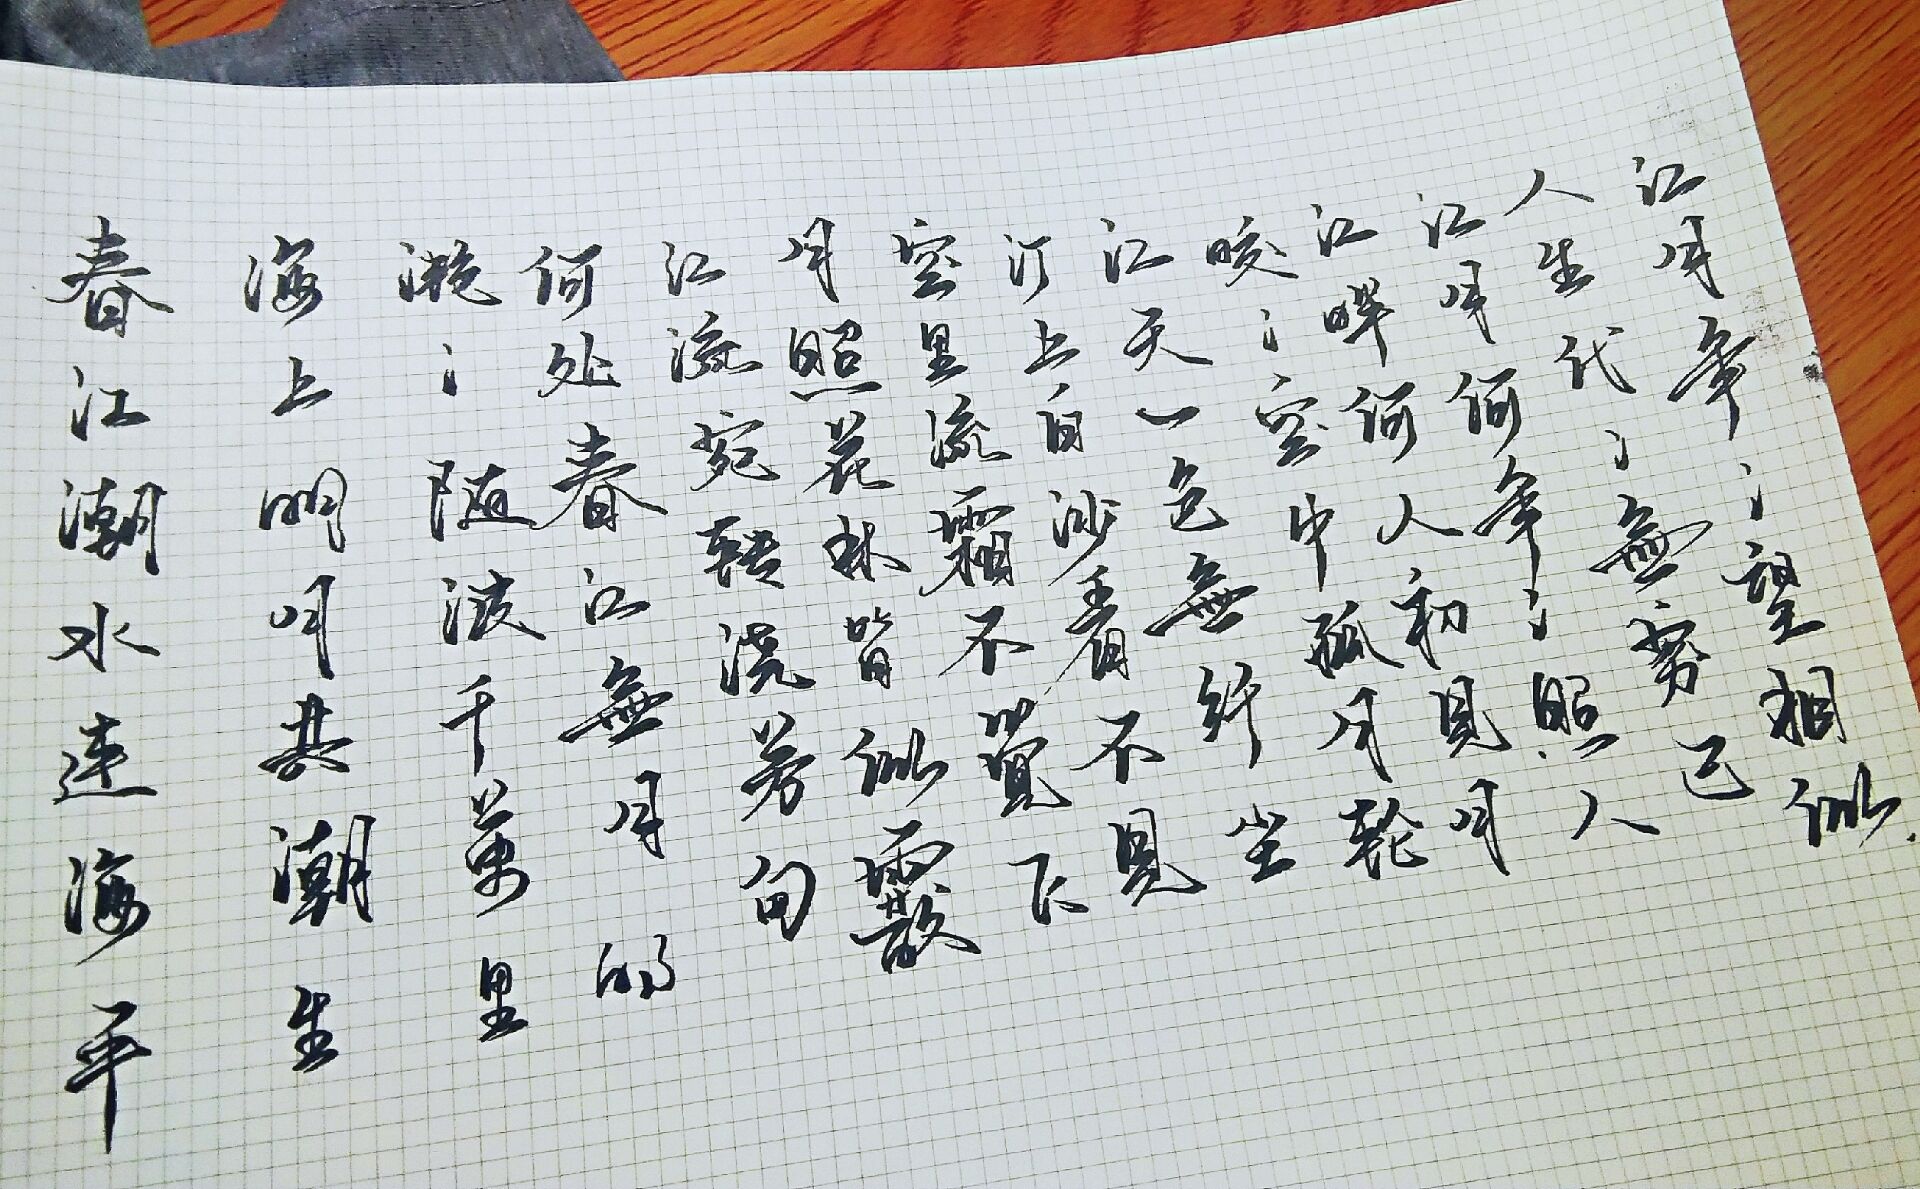 春江潮水连海平
海上明月共潮生
滟〻随波千萬里
何处春江無月明
江流宛转浇芳甸
月照花林皆似霰
空里流霜不覺飞
汀上白沙看不見
江天一色無纤尘
皎〻空中孤月轮
江畔何人初見月
江月何年〻照人
人生代〻無穷已
江月年〻望相似